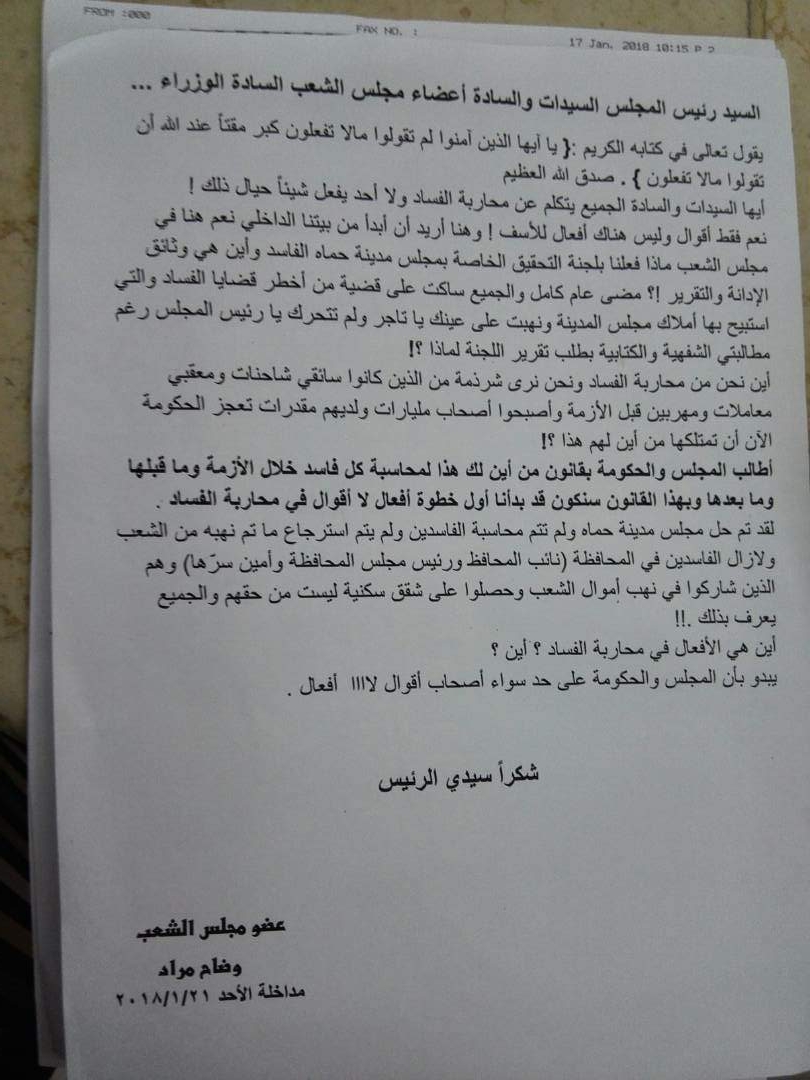 FROM :000
FAX NO. :
17 Jan. 2018 10:15 P 2
السيد رئيس المجلس السيدات والسادة أعضاء مجلس الشعب السادة الوزراء ...
يقول تعالى في كتابه الكريم :{ يا أيها الذين آمنوا لم تقولوا مالا تفعلون كبر مقتاً عند الله أن
تقولوا مالا تفعلون } . صدق الله العظيم
أيها السيدات والسادة الجميع يتكلم عن محاربة الفساد ولا أحد يفعل شيئاً حيال ذلك !
نعم فقط أقوال وليس هناك أفعال للأسف ! وهنا أريد أن أبدأ من بيتنا الداخلي نعم هنا في
مجلس الشعب ماذا فعلنا بلجنة التحقيق الخاصة بمجلس مدينة حماه الفاسد وأين هي وثائق
الإدانة والتقرير !؟ مضى عام كامل والجميع ساكت على قضية من أخطر قضايا الفساد والتي
استبيح بها أملاك مجلس المدينة ونهبت على عينك يا تاجر ولم تتحرك يا رئيس المجلس رغم
مطالبتي الشفهية والكتابية بطلب تقرير اللجنة لماذا ؟!
أين نحن من محاربة الفساد ونحن نرى شرذمة من الذين كانوا سائقي شاحنات ومعقبي
معاملات ومهربين قبل الأزمة وأصبحوا أصحاب مليارات ولديهم مقدرات تعجز الحكومة
الآن أن تمتلكها من أين لهم هذا ؟!
أطالب المجلس والحكومة بقانون من أين لك هذا لمحاسبة كل فاسد خلال الأزمة وما قبلها
وما بعدها وبهذا القانون سنكون قد بدأنا أول خطوة أفعال لا أقوال في محاربة الفساد .
لقد تم حل مجلس مدينة حماه ولم تتم محاسبة الفاسدين ولم يتم استرجاع ما تم نهبه من الشعب
ولازال الفاسدين في المحافظة (نائب المحافظ ورئيس مجلس المحافظة وأمين سرّها) وهم
الذين شاركوا في نهب أموال الشعب وحصلوا على شقق سكنية ليست من حقهم والجميع
يعرف بذلك .!!
أين هي الأفعال في محاربة الفساد ؟ أين ؟
يبدو بأن المجلس والحكومة على حد سواء أصحاب أقوال لاااا أفعال .
شكراً سيدي الرئيس
عضو مجلس الشعب
وضاح مراد
مداخلة الأحد ٢٠١٨/١/٢١